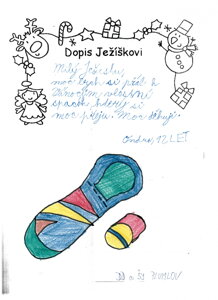 Dopis Ježíškovi
Milý Ježíšku,
moc bych si přál k
Vánocům vlastní
spacák, který si
moc přeju. Moc děkuji.
Ondra, 12 LET
DD a ŠJ